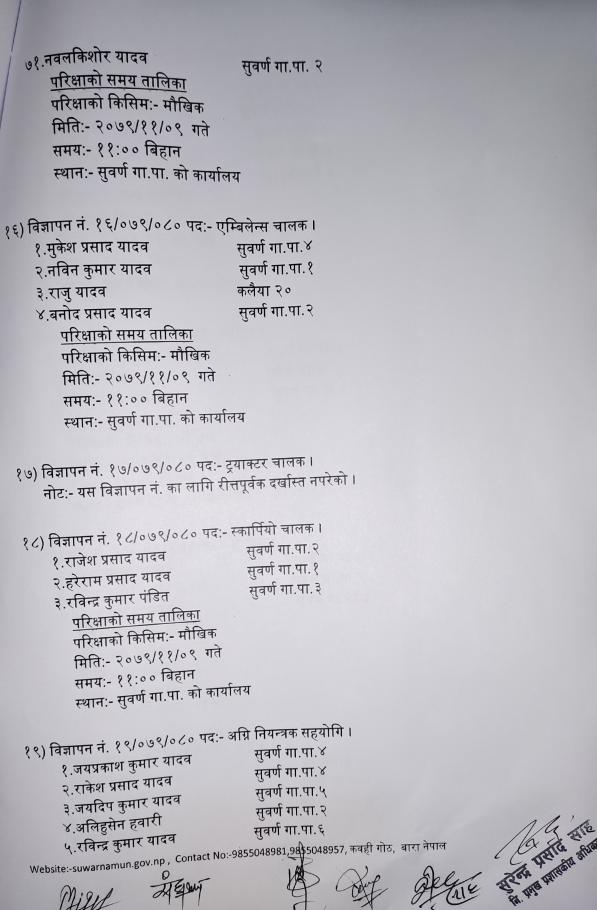 ७१.नवलकिशोर यादव सुवर्ण गा.पा. २
परिक्षाको समय तालिका
परिक्षाको किसिम:- मौखिक
मिति:- २०७९/११/०९ गते
समय:- ११:०० बिहान
स्थान:- सुवर्ण गा.पा. को कार्यालय
१६) विज्ञापन नं. १६/०७९/०८० पद:- एम्बिलेन्स चालक ।
१.मुकेश प्रसाद यादव सुवर्ण गा.पा.४
२.नविन कुमार यादव सुवर्ण गा.पा.१
३.राजु यादव कलैया २०
४.बनोद प्रसाद यादव सुवर्ण गा.पा.२
परिक्षाको समय तालिका
परिक्षाको किसिम:- मौखिक
मिति:- २०७९/११/०९ गते
समय:- ११:०० बिहान
स्थान:- सुवर्ण गा.पा. को कार्यालय
१७) विज्ञापन नं. १७/०७९/०८० पद:- ट्रयाक्टर चालक ।
नोट:- यस विज्ञापन नं. का लागि रीत्तपूर्वक दर्खास्त नपरेको ।
१८) विज्ञापन नं. १८/०७९/०८० पद:- स्कार्पियो चालक ।
१.राजेश प्रसाद यादव सुवर्ण गा.पा.२
२.हरेराम प्रसाद यादव सुवर्ण गा.पा.१
३.रविन्द्र कुमार पंडित सुवर्ण गा.पा.३
परिक्षाको समय तालिका
परिक्षाको किसिम:- मौखिक
मिति:- २०७९/११/०९ गते
समय:- ११:०० बिहान
स्थान:- सुवर्ण गा.पा. को कार्यालय
१९) विज्ञापन नं. १९/०७९/०८० पद:- अग्नि नियन्त्रक सहयोगि ।
१.जयप्रकाश कुमार यादव सुवर्ण गा.पा.४
२.राकेश प्रसाद यादव सुवर्ण गा.पा.४
३.जयदिप कुमार यादव सुवर्ण गा.पा.५
४.अलिहुसेन हवारी सुवर्ण गा.पा.२
५.रविन्द्र कुमार यादव सुवर्ण गा.पा.६
Website:-suwarnamun.gov.np , Contact No:-9855048981,9855048957, कवही गोठ, बारा नेपाल
सुरेन्द्र प्रसाद साह
नि. प्रमुख प्रशासकीय अधिकृ